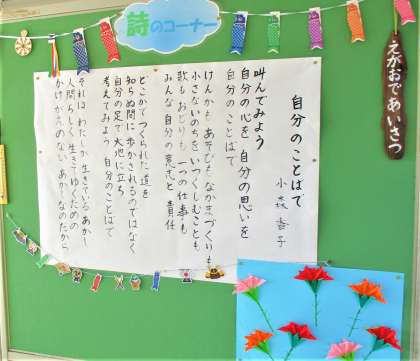 詩のコーナー
えがおであいさつ
自分のことばで
小森香子
叫んでみよう
自分の心を 自分の思いを
自分のことばで
けんかも あそびも なかまづくりも
小さないのちを いつくしむことも
歌も おどりも 一つの仕事も
みんな 自分の意志と 責任
どこかでつくられた 道を
知らぬ間に 歩かされるのではなく
自分の足で 大地に立ち
考えてみよう 自分のことばで
それは わたしが 生きている あかし
人間らしく 生きてゆくための
かけがえのない あかしなのだから